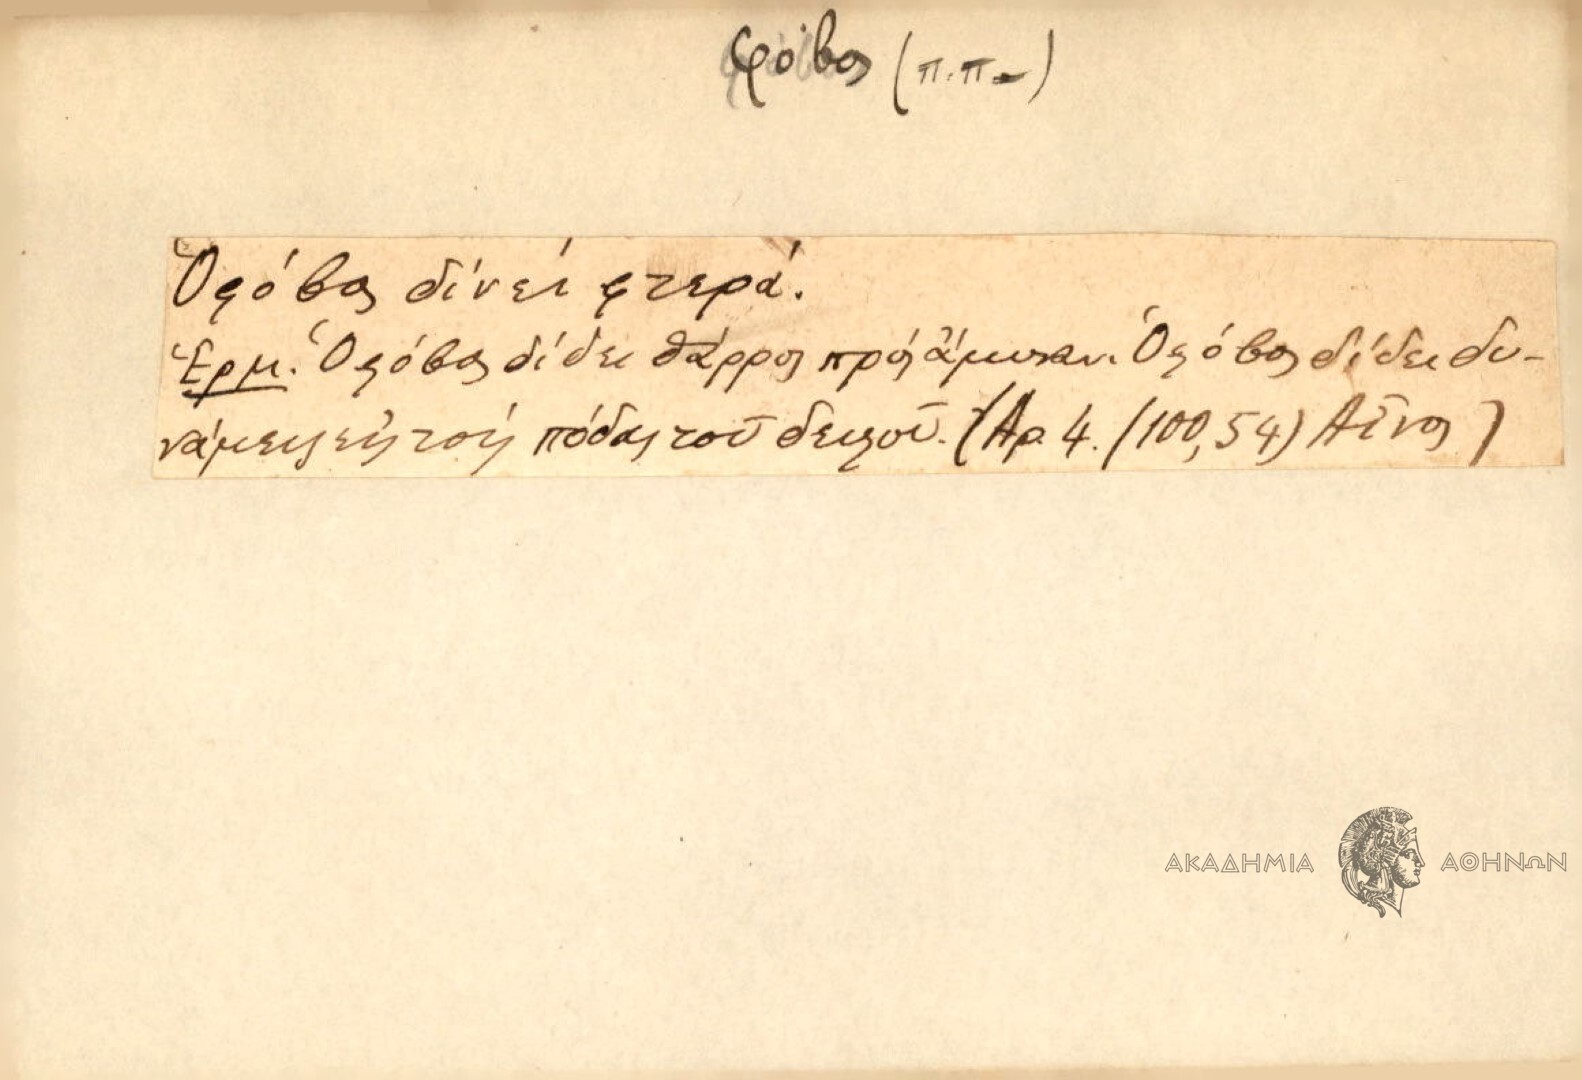 φόβος (π.π-)
Ὁ φόβος δίνει φτερά.
Ἑρμ. Ὁ φόβος δίδει θάρρος πρὸς ἄμυναν. Ὁ φόβος δίδει δυ-
νάμεις εἰς τοὺς πόδας τοῦ δειλοῦ. (Αρ. 4. /100,54) Αἶνος)
ΑΚΑΔΗΜΙΑ ΑΘΗΝΩΝ